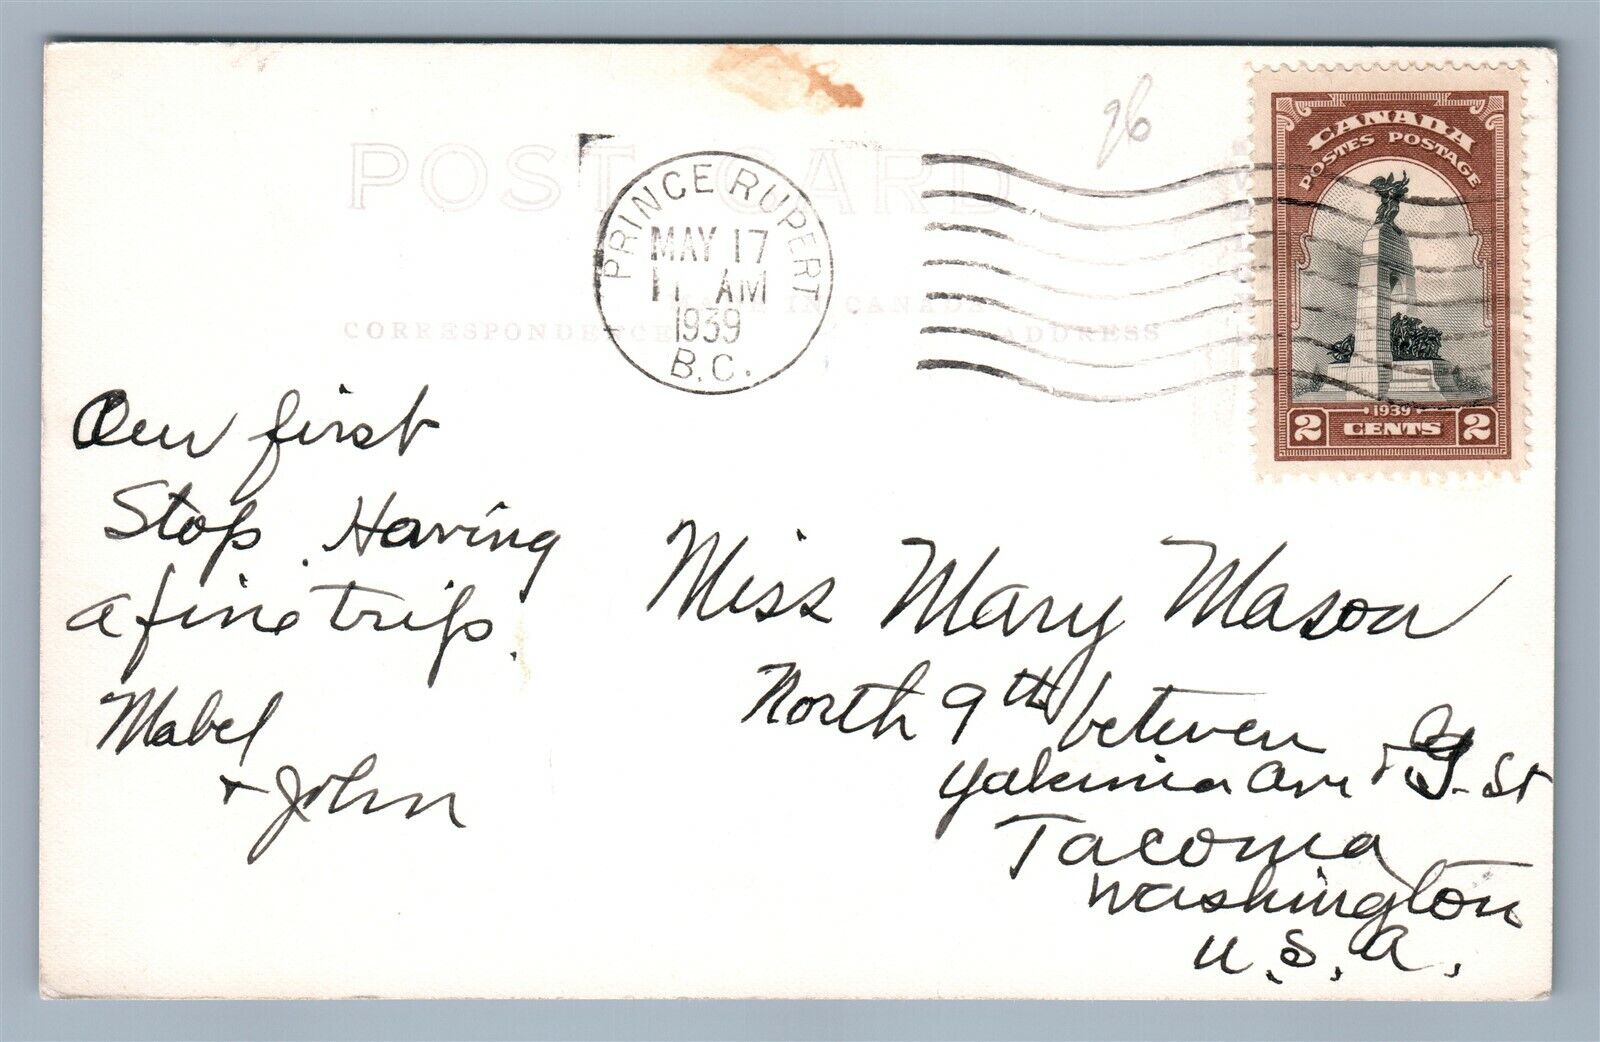 POST CARD
26
PRINCE RUPERT
MAY 17
11 AM
1939
B.C.
CANADA
POSTES POSTAGE
1939
2 CENTS 2
MADE IN CANADA
CORRESPONDENCE
ADDRESS
Our first
Stop. Having
a fine trip.
Mabel
& John
Miss Mary Mason
North 9th between
Yakima Ave & G. St
Tacoma
Washington
U.S.A.